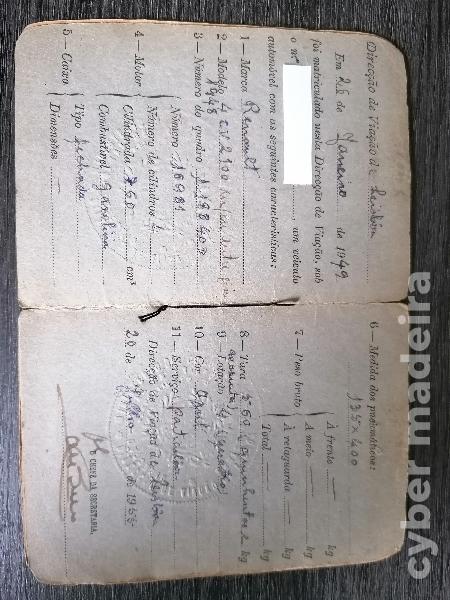 Direcção de Viação de Lisbôa
Em 28 de Janeiro de 1949
foi matriculado nesta Direcção de Viação, sob
o n.º , um veículo
automóvel com as seguintes características:
1 — Marca Renault
2 — Modelo 4 cv 2108
1948
3 — Número do quadro
Número
4 — Motor
Número de cilindros 4
Cilindrada 760 cm³
Combustível gasolina
5 — Caixa
Tipo fechada
Dimensões —
6 — Medida dos pneumáticos:
135 x 400
7 — Peso bruto
À frente — kg
A meio — kg
À retaguarda — kg
Total — kg
8 — Tara 560 kg
9 — Lotação 4 (quatro)
10 — Cor
11 — Serviço particular
Direcção de Viação de Lisbôa
28 de Julho de 1955
O CHEFE DA SECRETARIA,
cyber madeira